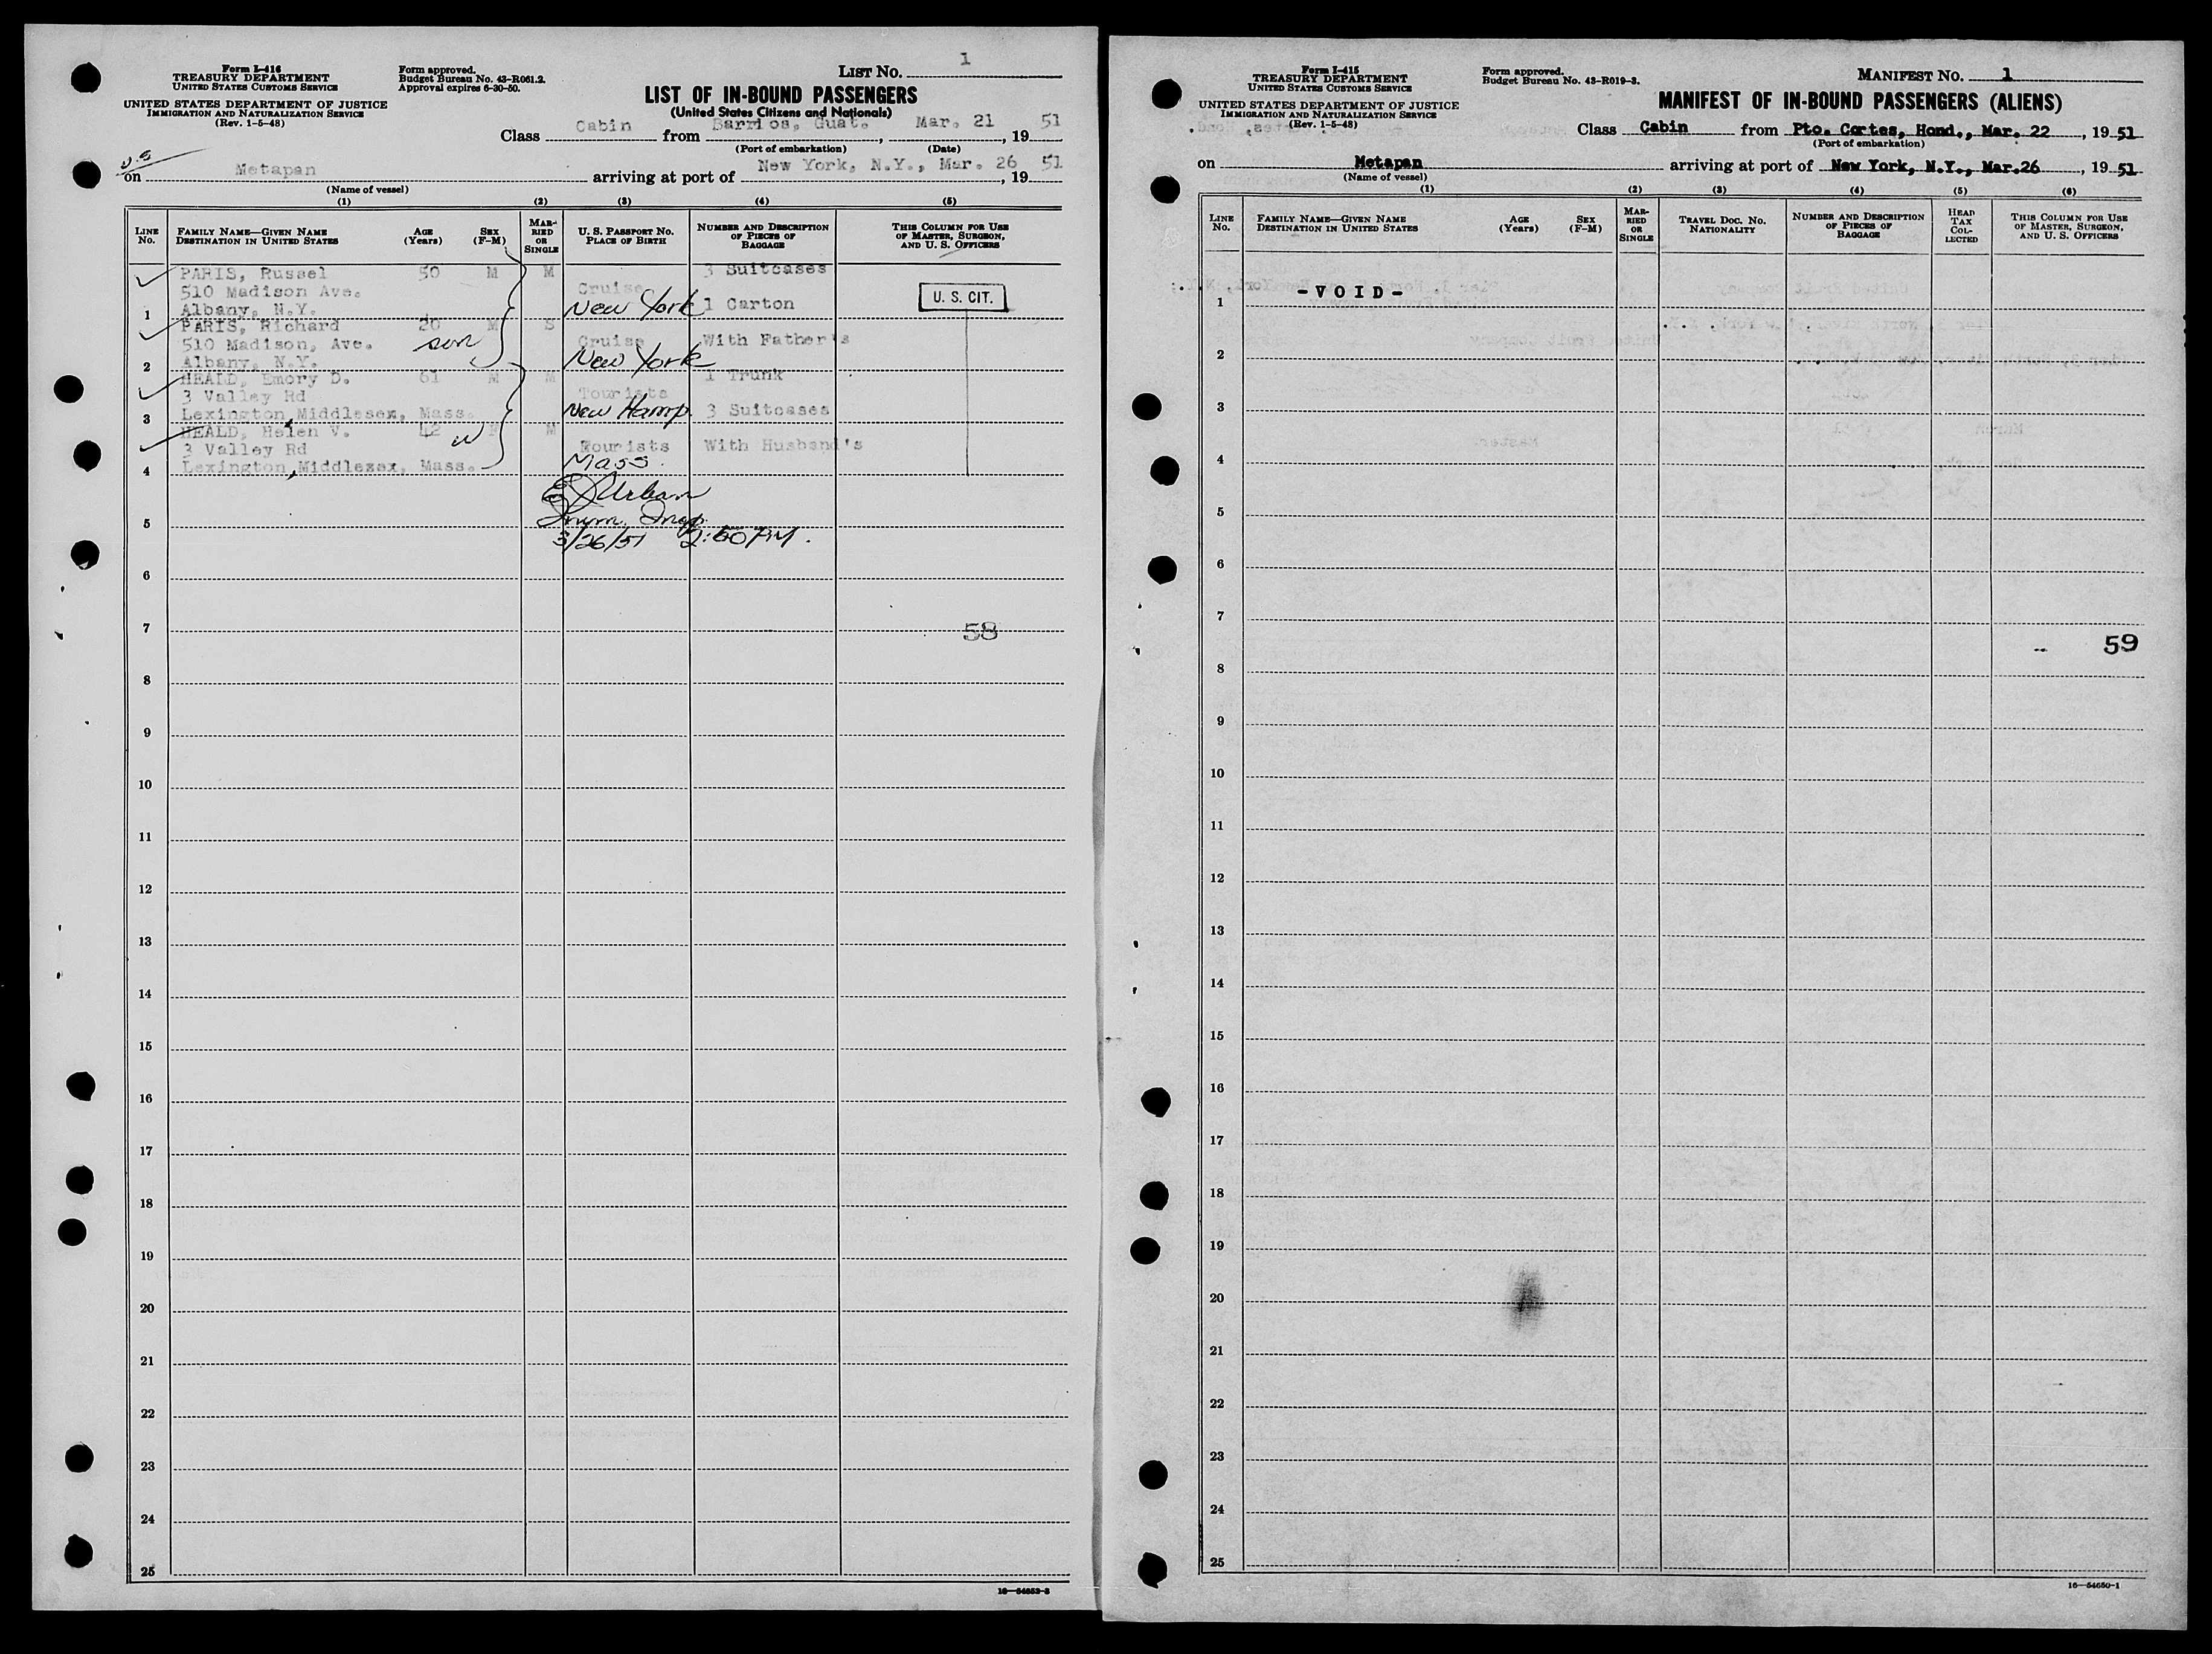 Form I-416
TREASURY DEPARTMENT
UNITED STATES CUSTOMS SERVICE
UNITED STATES DEPARTMENT OF JUSTICE
IMMIGRATION AND NATURALIZATION SERVICE
(Rev. 1-5-48)
Form approved.
Budget Bureau No. 43-R061.2.
Approval expires 6-30-50.
LIST NO. 1
LIST OF IN-BOUND PASSENGERS
(United States Citizens and Nationals)
Class Cabin from Barrios, Guat., Mar. 21, 19 51
(Port of embarkation) (Date)
U.S
on Metapan arriving at port of New York, N.Y., Mar. 26, 19 51
(Name of vessel)
(1) (2) (3) (4) (5)
LINE No. FAMILY NAME—GIVEN NAME DESTINATION IN UNITED STATES AGE (Years) SEX (F-M) MARRIED OR SINGLE U. S. PASSPORT NO. PLACE OF BIRTH NUMBER AND DESCRIPTION OF PIECES OF BAGGAGE THIS COLUMN FOR USE OF MASTER, SURGEON, AND U. S. OFFICERS
PARIS, Russel 50 M M 3 Suitcases
510 Madison Ave. Cruise
1 Albany, N.Y. New York 1 Carton U. S. CIT.
PARIS, Richard 20 M S
510 Madison, Ave. son Cruise With Father's
2 Albany, N.Y. New York
HEALD, Emory D. 61 M M 1 Trunk
3 Valley Rd Tourists
3 Lexington, Middlesex, Mass. New Hamp. 3 Suitcases
HEALD, Helen V. 42 W F M
3 Valley Rd Tourists With Husband's
4 Lexington, Middlesex, Mass. Mass.
Urban
5 Imm. Insp.
3/26/51 2:50 PM.
6
7 58
8
9
10
11
12
13
14
15
16
17
18
19
20
21
22
23
24
25
16—54653-3
Form I-415
TREASURY DEPARTMENT
UNITED STATES CUSTOMS SERVICE
UNITED STATES DEPARTMENT OF JUSTICE
IMMIGRATION AND NATURALIZATION SERVICE
(Rev. 1-5-48)
Form approved.
Budget Bureau No. 43-R019-3.
MANIFEST NO. 1
MANIFEST OF IN-BOUND PASSENGERS (ALIENS)
Class Cabin from Pto. Cortes, Hond., Mar. 22, 19 51
(Port of embarkation)
on Metapan arriving at port of New York, N.Y., Mar.26, 19 51
(Name of vessel)
(1) (2) (3) (4) (5) (6)
LINE No. FAMILY NAME—GIVEN NAME DESTINATION IN UNITED STATES AGE (Years) SEX (F-M) MARRIED OR SINGLE TRAVEL DOC. NO. NATIONALITY NUMBER AND DESCRIPTION OF PIECES OF BAGGAGE HEAD TAX COLLECTED THIS COLUMN FOR USE OF MASTER, SURGEON, AND U. S. OFFICERS
1 - V O I D -
2
3
4
5
6
7
59
8
9
10
11
12
13
14
15
16
17
18
19
20
21
22
23
24
25
16—54650-1